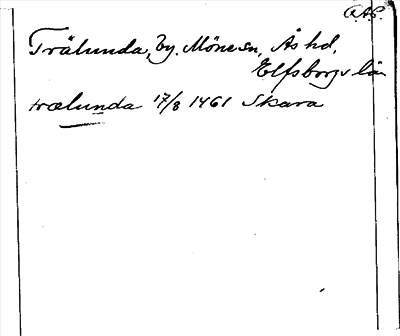 O.A.S.
Trälunda, by. Möne sn, Ås hd,
Elfsborgs län
trælunda 17/8 1461 Skara